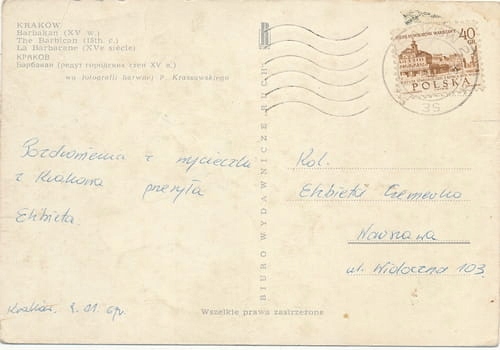 KRAKÓW
Barbakan (XV w.)
The Barbican (15th. c.)
La Barbacane (XVe siècle)
КРАКОВ
Барбакан (редут городских стен XV в.)
wg fotografii barwnej P. Krassowskiego
BIURO WYDAWNICZE RUCH
40
POLSKA
Pozdrowienia z wycieczki
z Krakowa przesyła
Elżbieta.
Kraków,
Kol.
Elżbieta
Warszawa
ul. Widoczna 103.
Wszelkie prawa zastrzeżone